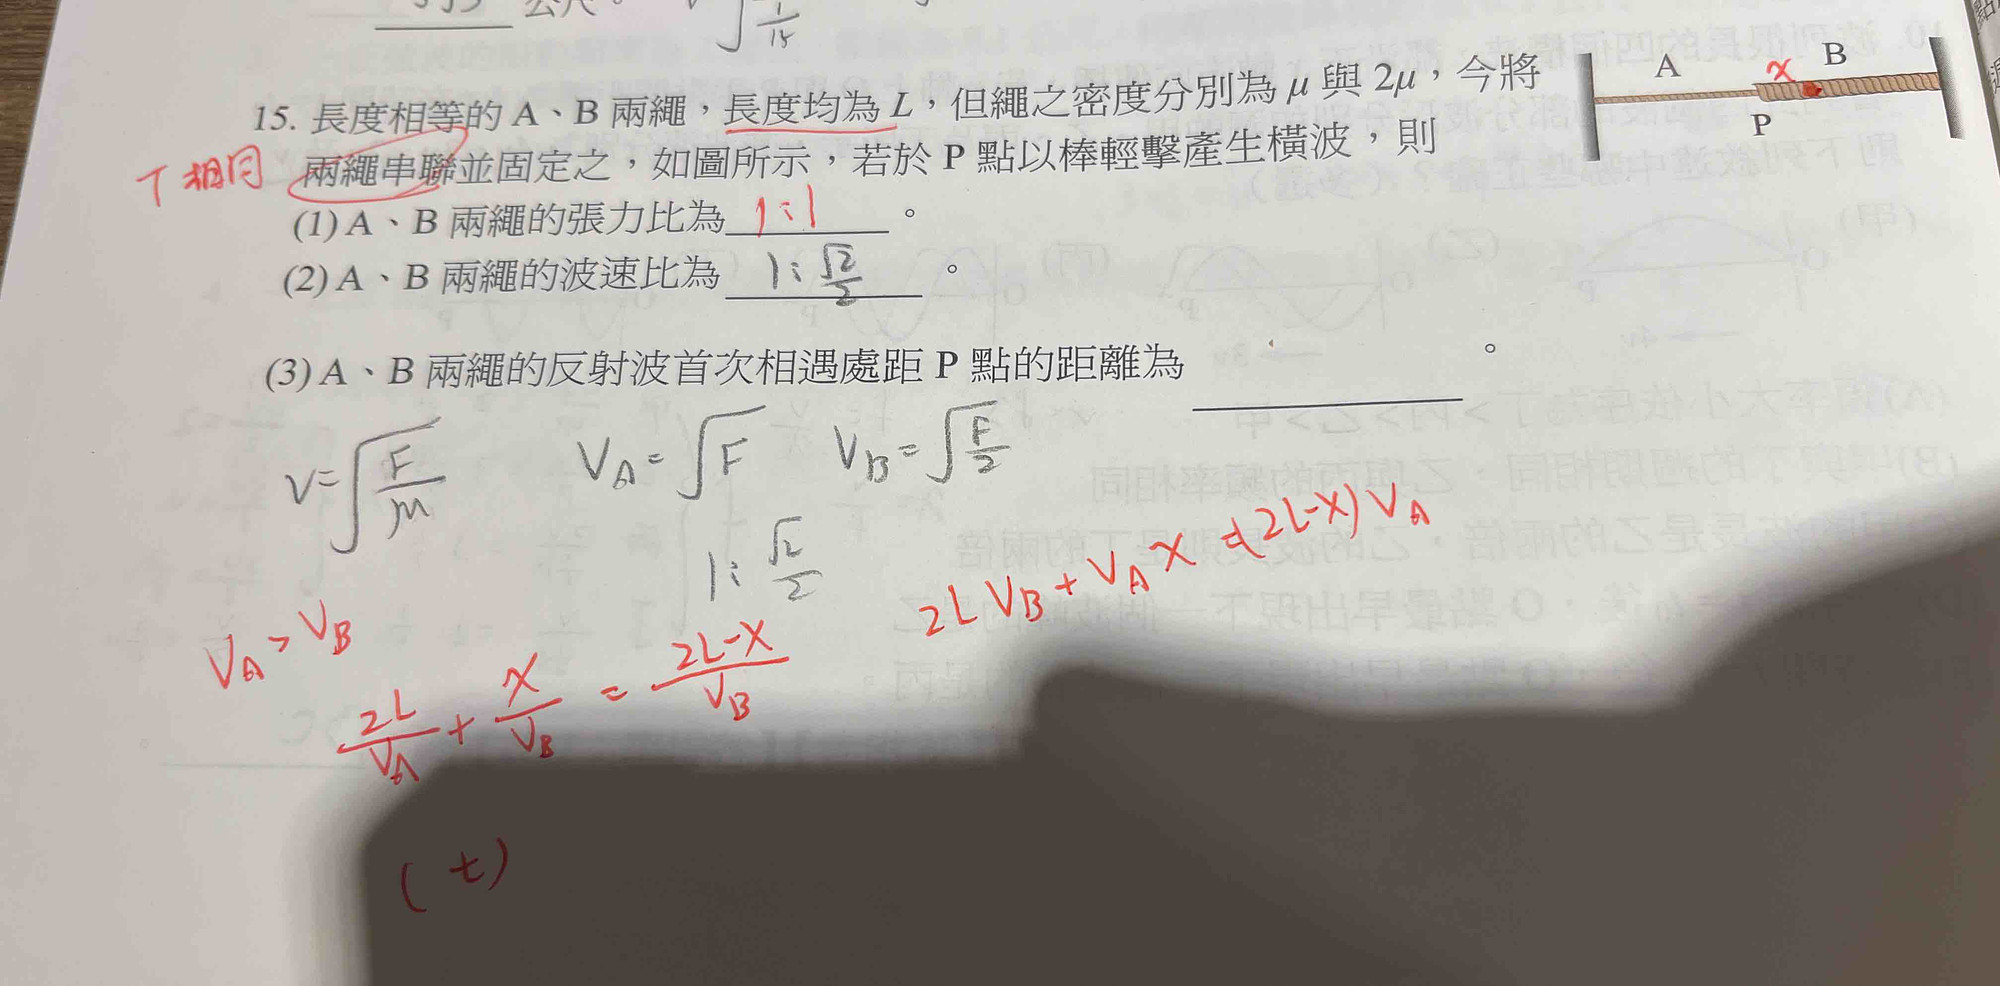 公尺。
√1/15
15. 長度相等的 A、B 兩繩，長度均為 L，但繩之密度分別為 μ 與 2μ，今將
T 相同 兩繩串聯並固定之，如圖所示，若於 P 點以棒輕擊產生橫波，則
A x B
P
(1) A、B 兩繩的張力比為 1:1 。
(2) A、B 兩繩的波速比為 1:√2/2 。
(3) A、B 兩繩的反射波首次相遇處距 P 點的距離為 。
V=√F/μ VA=√F VB=√F/2
1:√2/2
VA>VB
2L/VA + x/VB = 2L-x/VB
2LVB+VAx=(2L-x)VA
(t)